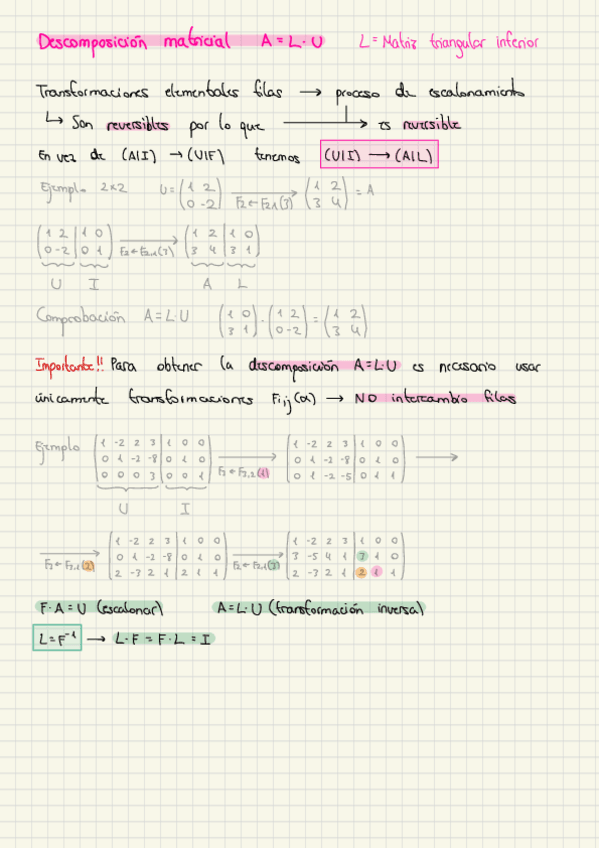 Descomposición matricial A = L · U L = Matriz triangular inferior
Transformaciones elementales filas → proceso de escalonamiento
↳ Son reversibles por lo que → es reversible
En vez de (A|I) → (U|F) tenemos (U|I) → (A|L)
Ejemplo 2x2 U = (1 2; 0 -2) F2 ← F2,1(3) (1 2; 3 4) = A
(1 2 | 1 0; 0 -2 | 0 1) F2 ← F2,1(3) (1 2 | 1 0; 3 4 | 3 1)
U I A L
Comprobación A = L·U (1 0; 3 1) · (1 2; 0 -2) = (1 2; 3 4)
Importante!! Para obtener la descomposición A = L·U es necesario usar
únicamente transformaciones Fi,j(α) → NO intercambio filas
Ejemplo (1 -2 2 3 | 1 0 0; 0 1 -2 -8 | 0 1 0; 0 0 0 3 | 0 0 1) F3 ← F3,2(1) (1 -2 2 3 | 1 0 0; 0 1 -2 -8 | 0 1 0; 0 1 -2 -5 | 0 1 1) →
U I
F3 ← F3,1(2) (1 -2 2 3 | 1 0 0; 0 1 -2 -8 | 0 1 0; 2 -3 2 1 | 2 1 1) F2 ← F2,1(3) (1 -2 2 3 | 1 0 0; 3 -5 4 1 | 3 1 0; 2 -3 2 1 | 2 1 1)
F·A = U (escalonar) A = L·U (transformación inversa)
L = F⁻¹ → L·F = F·L = I